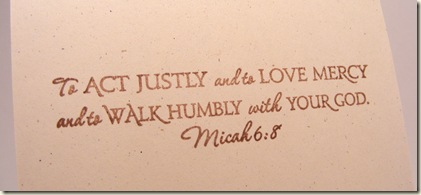 To ACT JUSTLY and to LOVE MERCY
and to WALK HUMBLY with YOUR GOD.
Micah 6:8